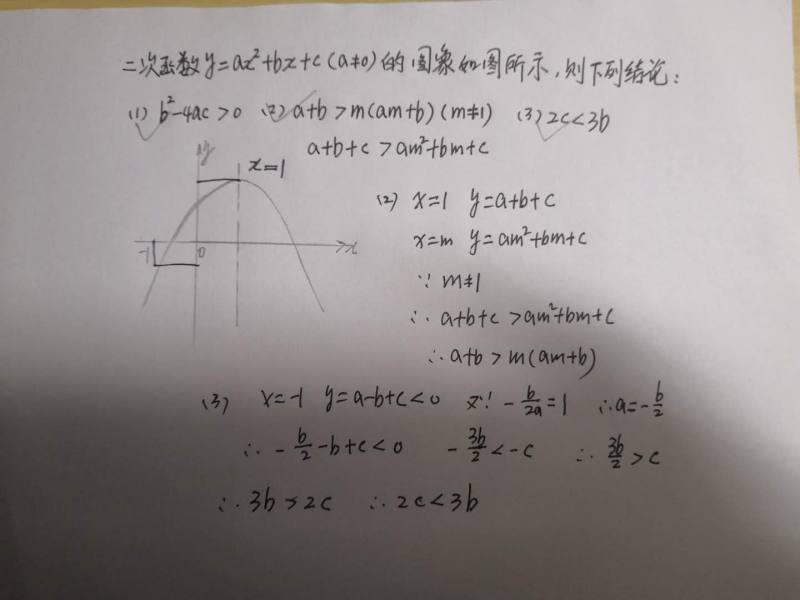 二次函数y=ax²+bx+c(a≠0)的图象如图所示,则下列结论:
(1) b²-4ac>0 (2) a+b>m(am+b)(m≠1) (3) 2c<3b
a+b+c>am²+bm+c
y
x=1
-1 0 x
(2) x=1 y=a+b+c
x=m y=am²+bm+c
∵ m≠1
∴ a+b+c>am²+bm+c
∴ a+b>m(am+b)
(3) x=-1 y=a-b+c<0 又∵ -b/2a=1 ∴a=-b/2
∴ -b/2-b+c<0 -3b/2<-c ∴ 3b/2>c
∴ 3b>2c ∴ 2c<3b